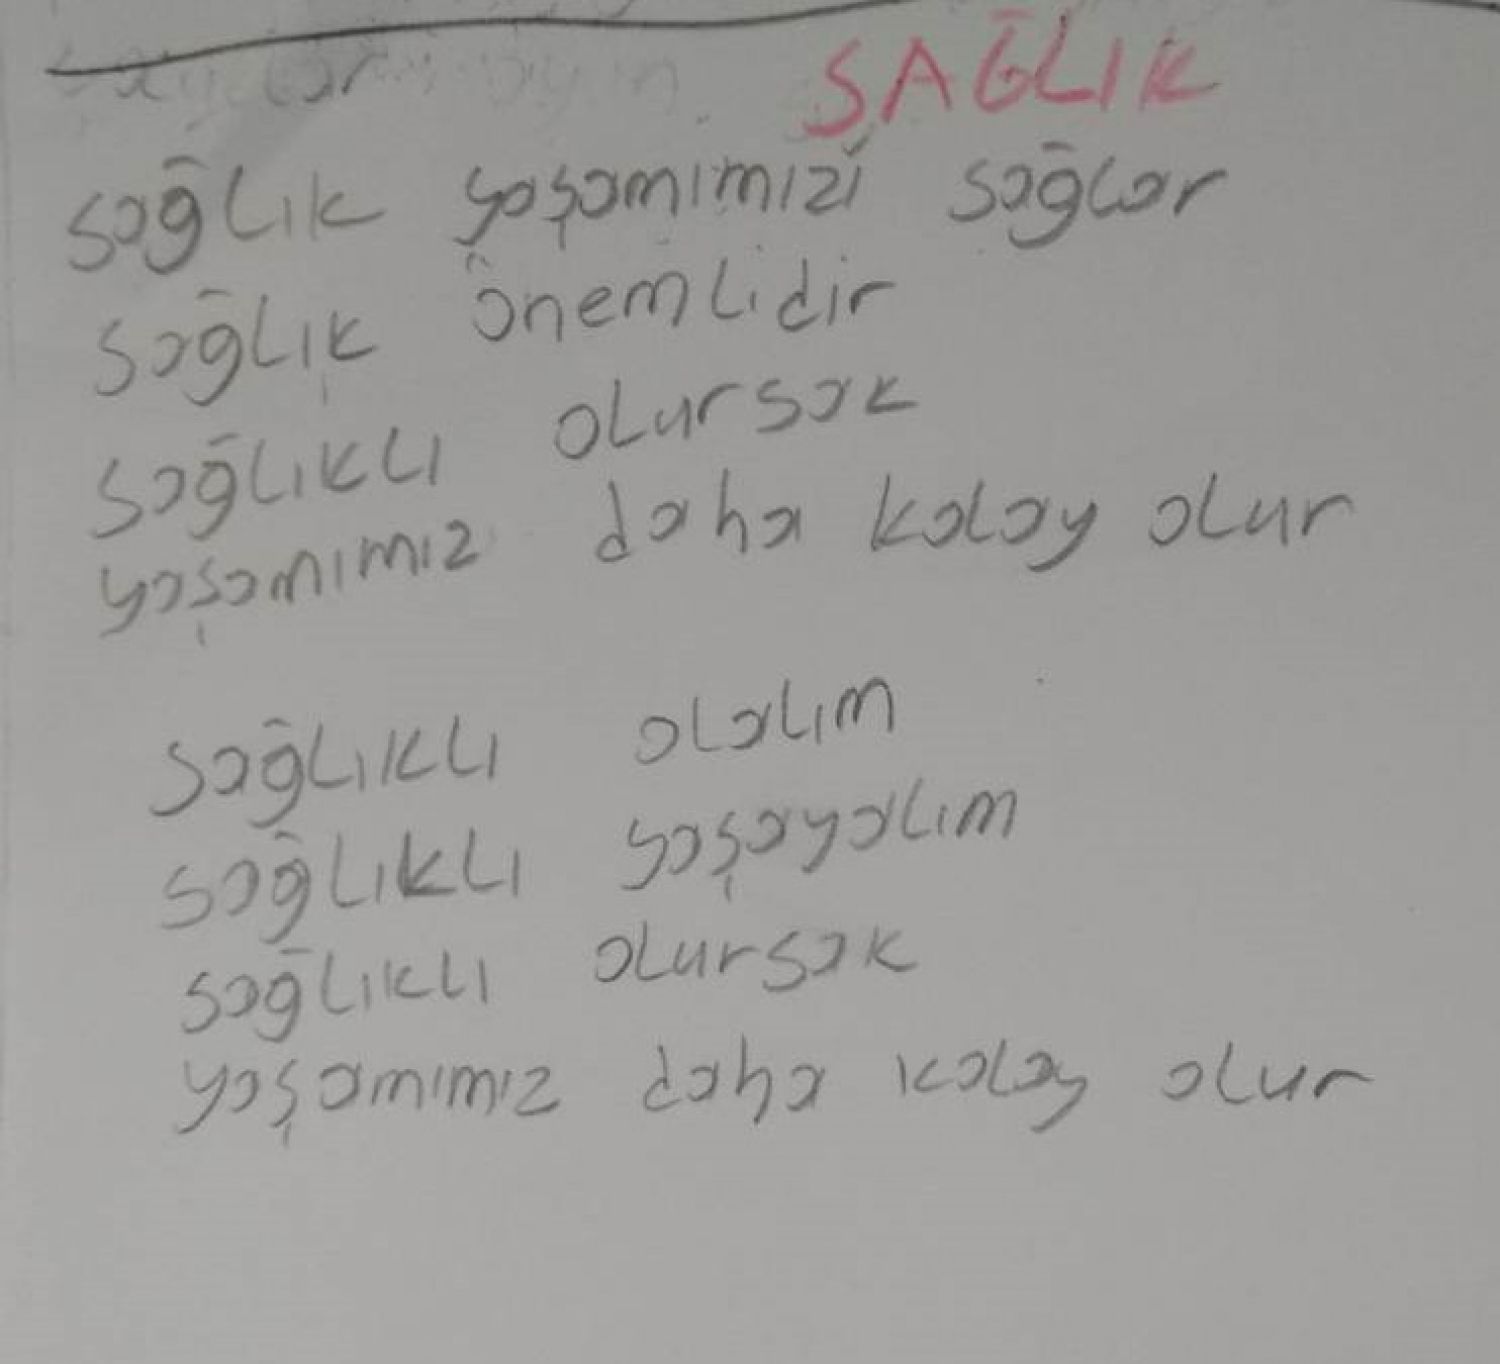 SAĞLIK
sağlık yaşamımızı sağlar
sağlık önemlidir
sağlıklı olursak
yaşamımız daha kolay olur
sağlıklı olalım
sağlıklı yaşayalım
sağlıklı olursak
yaşamımız daha kolay olur